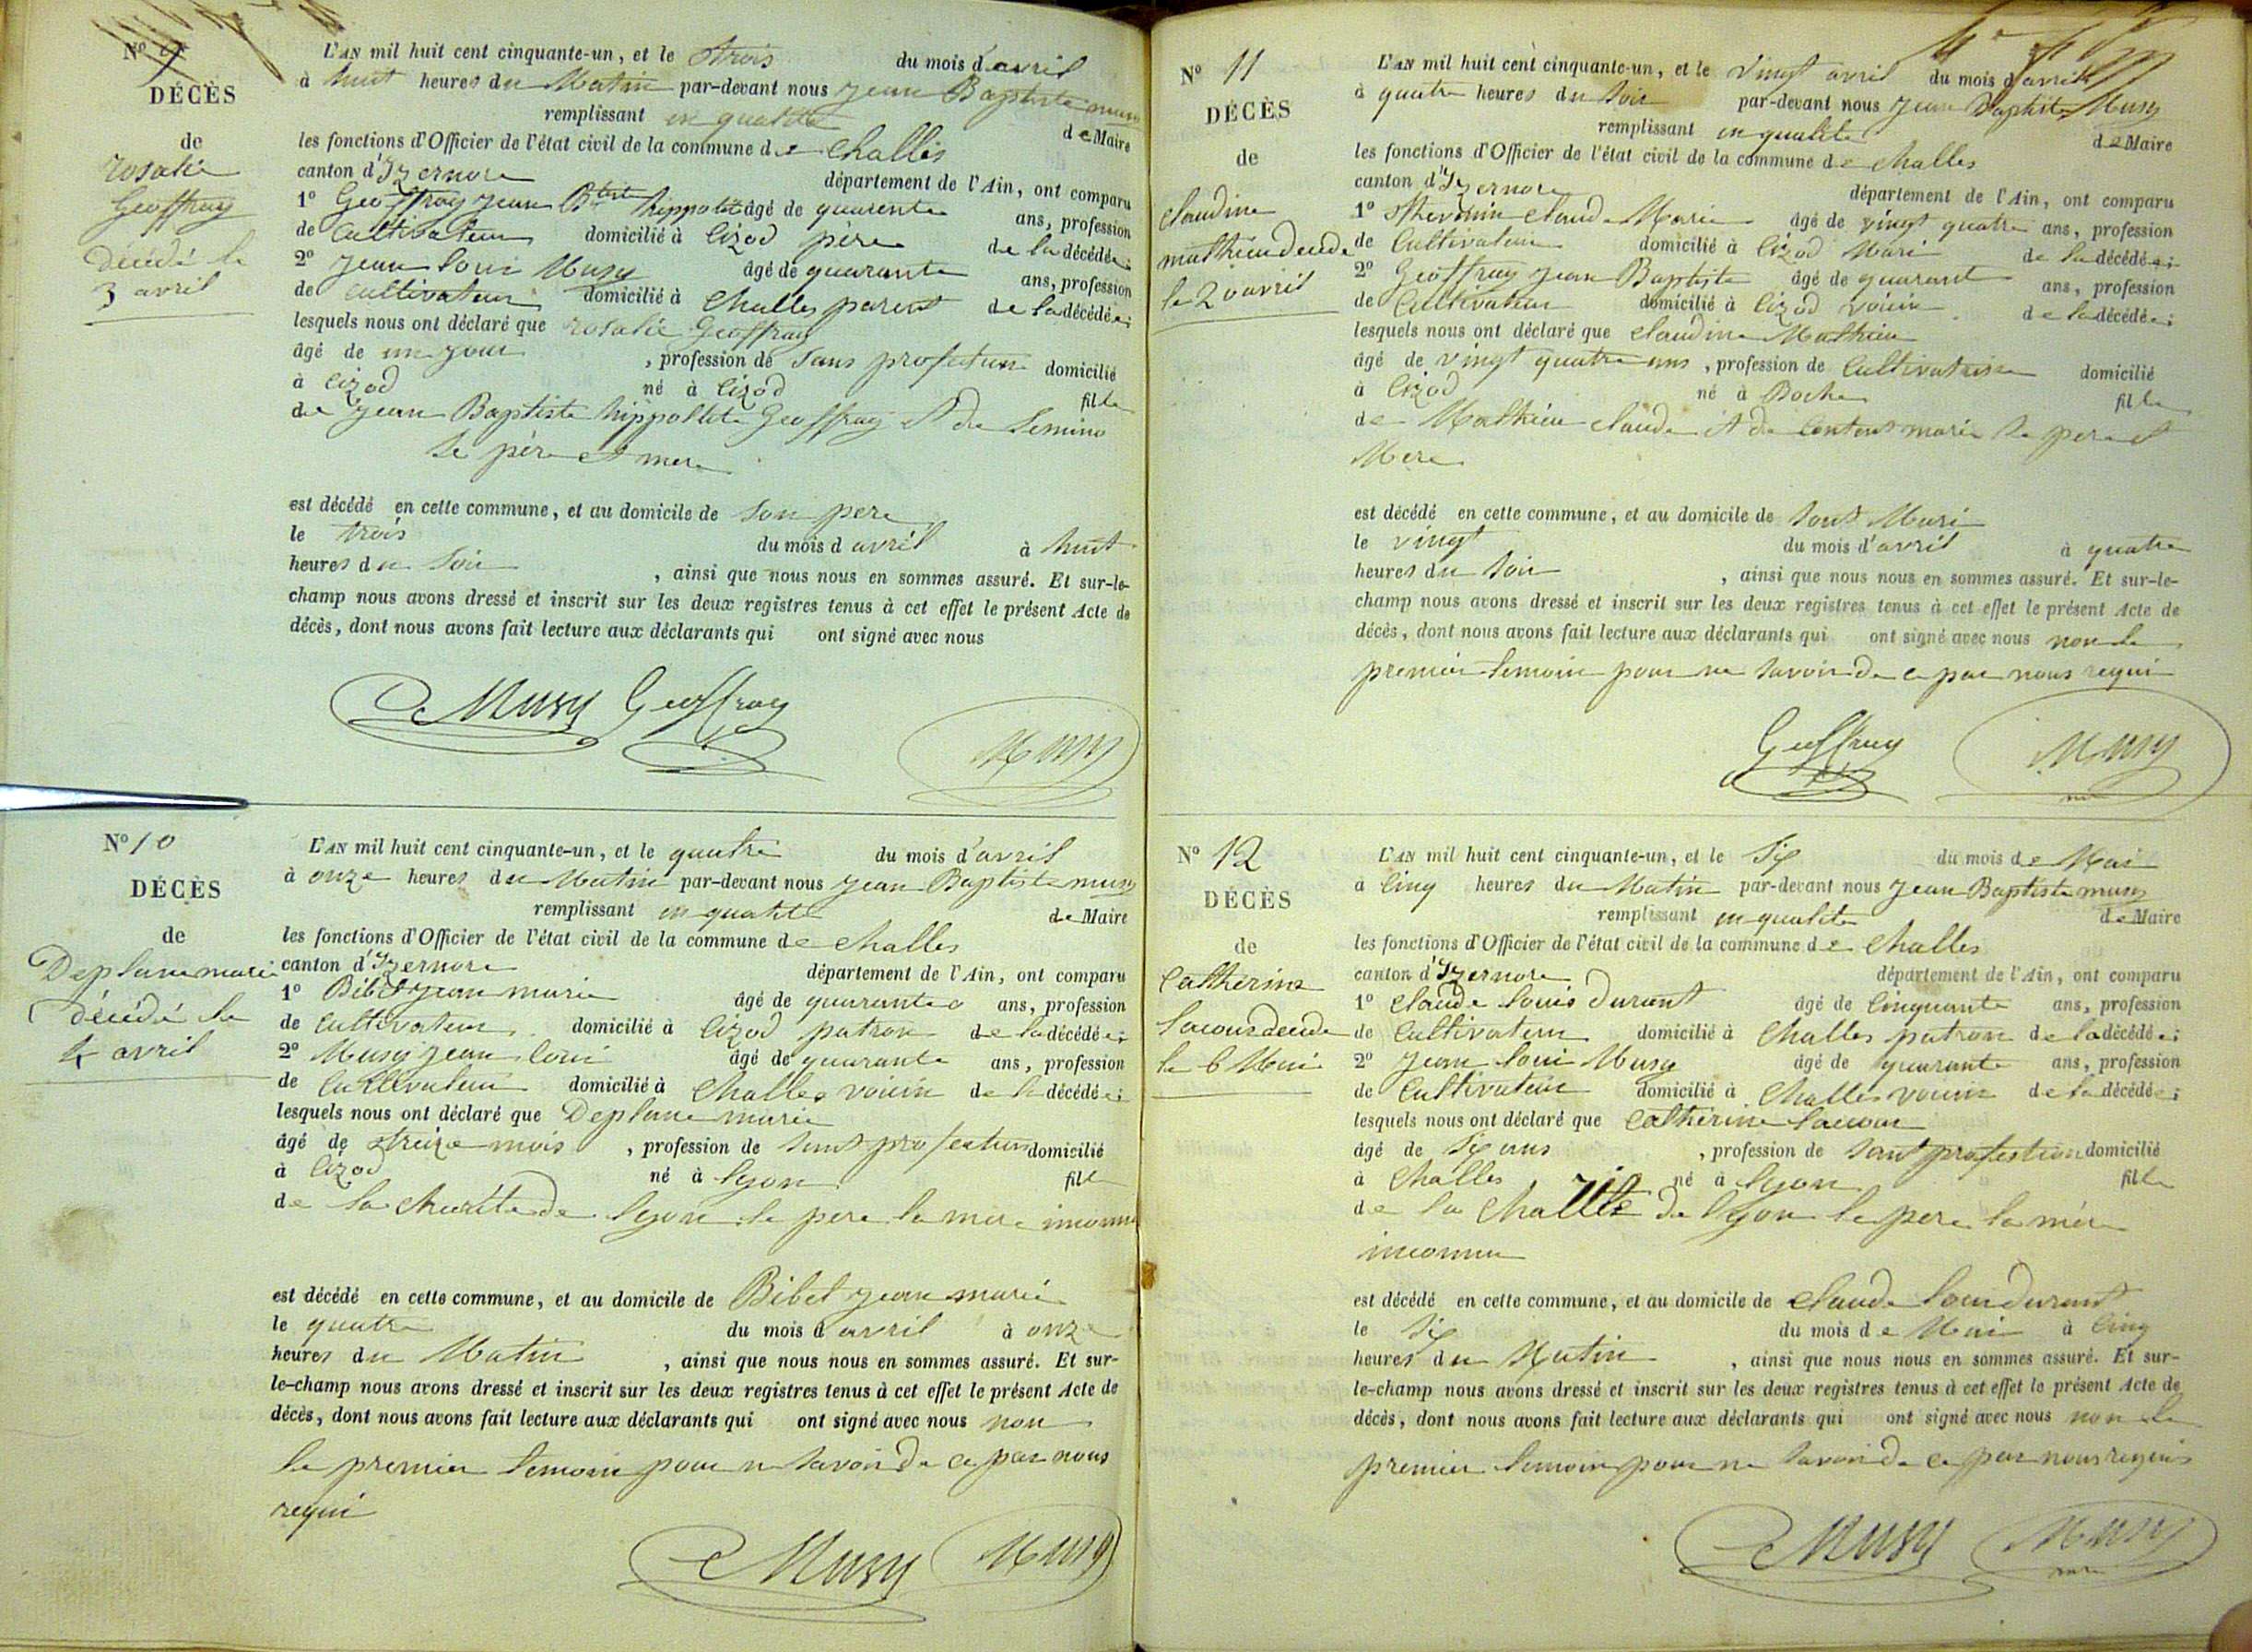 N° 9
DÉCÈS
de
rosalie
Geoffray
décédé le
3 avril
L'AN mil huit cent cinquante-un, et le trois du mois d'avril
à huit heures du Matin par-devant nous jean Baptiste musy
remplissant en qualité de Maire
les fonctions d'Officier de l'état civil de la commune de Challes
canton d'Izernore département de l'Ain, ont comparu
1° Geoffray jean Bte hippolite âgé de quarente ans, profession
de Cultivateur domicilié à Cizod père de la décédée;
2° jean loui Musy âgé de quarante ans, profession
de cultivateur domicilié à Challes parent de la décédée;
lesquels nous ont déclaré que rosalie Geoffray
âgé de un jour, profession de sans profetion domicilié
à Cizod né à Cizod fille
de jean Baptiste hippolite Geoffray et de
le père et mere
est décédé en cette commune, et au domicile de son pere
le trois du mois d avril à huit
heures du Soir, ainsi que nous nous en sommes assuré. Et sur-le-
champ nous avons dressé et inscrit sur les deux registres tenus à cet effet le présent Acte de
décès, dont nous avons fait lecture aux déclarants qui ont signé avec nous
Musy Geoffray
Musy
N° 10
DÉCÈS
de
Deplane marie
décédé le
4 avril
L'AN mil huit cent cinquante-un, et le quatre du mois d'avril
à onze heures du Matin par-devant nous jean Baptiste musy
remplissant en qualité de Maire
les fonctions d'Officier de l'état civil de la commune de Challes
canton d'Izernore département de l'Ain, ont comparu
1° Bibet jean marie âgé de quarante ans, profession
de cultivateur domicilié à Cizod patron de la décédée;
2° Musy jean loui âgé de quarante ans, profession
de Cultivateur domicilié à Challes voisin de la décédée;
lesquels nous ont déclaré que Deplane marie
âgé de treize mois, profession de sans profection domicilié
à Cizod né à lyon fille
de la charité de lyon le pere la mere inconnu
est décédé en cette commune, et au domicile de Bibet jean marie
le quatre du mois d avril à onze
heures du Matin, ainsi que nous nous en sommes assuré. Et sur-
le-champ nous avons dressé et inscrit sur les deux registres tenus à cet effet le présent Acte de
décès, dont nous avons fait lecture aux déclarants qui ont signé avec nous non
le premier temoin pour ne savoir de ce par nous
requi
Musy Musy
N° 11
DÉCÈS
de
claudine
mathieu decede
le 20 avril
L'AN mil huit cent cinquante-un, et le vingt avril du mois d'avril
à quatre heures du soir par-devant nous jean Baptiste Musy
remplissant en qualité de Maire
les fonctions d'Officier de l'état civil de la commune de Challes
canton d'Izernore département de l'Ain, ont comparu
1° claude Marie âgé de vingt quatre ans, profession
de Cultivateur domicilié à Cizod Mari de la décédée;
2° Geoffray jean Baptiste âgé de quarant ans, profession
de Cultivateur domicilié à Cizod voisin de la décédée;
lesquels nous ont déclaré que claudine Mathieu
âgé de vingt quatre ans, profession de Cultivatrice domicilié
à Cizod né à Boche fille
de Mathieu claude et de marie le pere et
Mere
est décédé en cette commune, et au domicile de sont Mari
le vingt du mois d'avril à quatre
heures du soir, ainsi que nous nous en sommes assuré. Et sur-le-
champ nous avons dressé et inscrit sur les deux registres tenus à cet effet le présent Acte de
décès, dont nous avons fait lecture aux déclarants qui ont signé avec nous non le
premier temoin pour ne savoir de ce par nous requi
Geoffray Musy
N° 12
DÉCÈS
de
Catherine
lacour decede
le 6 Mai
L'AN mil huit cent cinquante-un, et le six du mois de Mai
à cinq heures du Matin par-devant nous jean Baptiste musy
remplissant en qualite de Maire
les fonctions d'Officier de l'état civil de la commune de Challes
canton d'Izernore département de l'Ain, ont comparu
1° Claude louis durant âgé de cinquante ans, profession
de Cultivateur domicilié à Challes patron de la décédée;
2° jean loui Musy âgé de quarante ans, profession
de Cultivateur domicilié à Challes voisin de la décédée;
lesquels nous ont déclaré que Catherine lacour
âgé de six ans, profession de sant profestion domicilié
à Challes né à lyon fille
de la de lyon le pere la mère
inconnu
est décédé en cette commune, et au domicile de claude loui durant
le six du mois de Mai à cinq
heures du Matin, ainsi que nous nous en sommes assuré. Et sur-
le-champ nous avons dressé et inscrit sur les deux registres tenus à cet effet le présent Acte de
décès, dont nous avons fait lecture aux déclarants qui ont signé avec nous non le
premier temoin pour ne savoir de ce par nous requis
Musy Musy